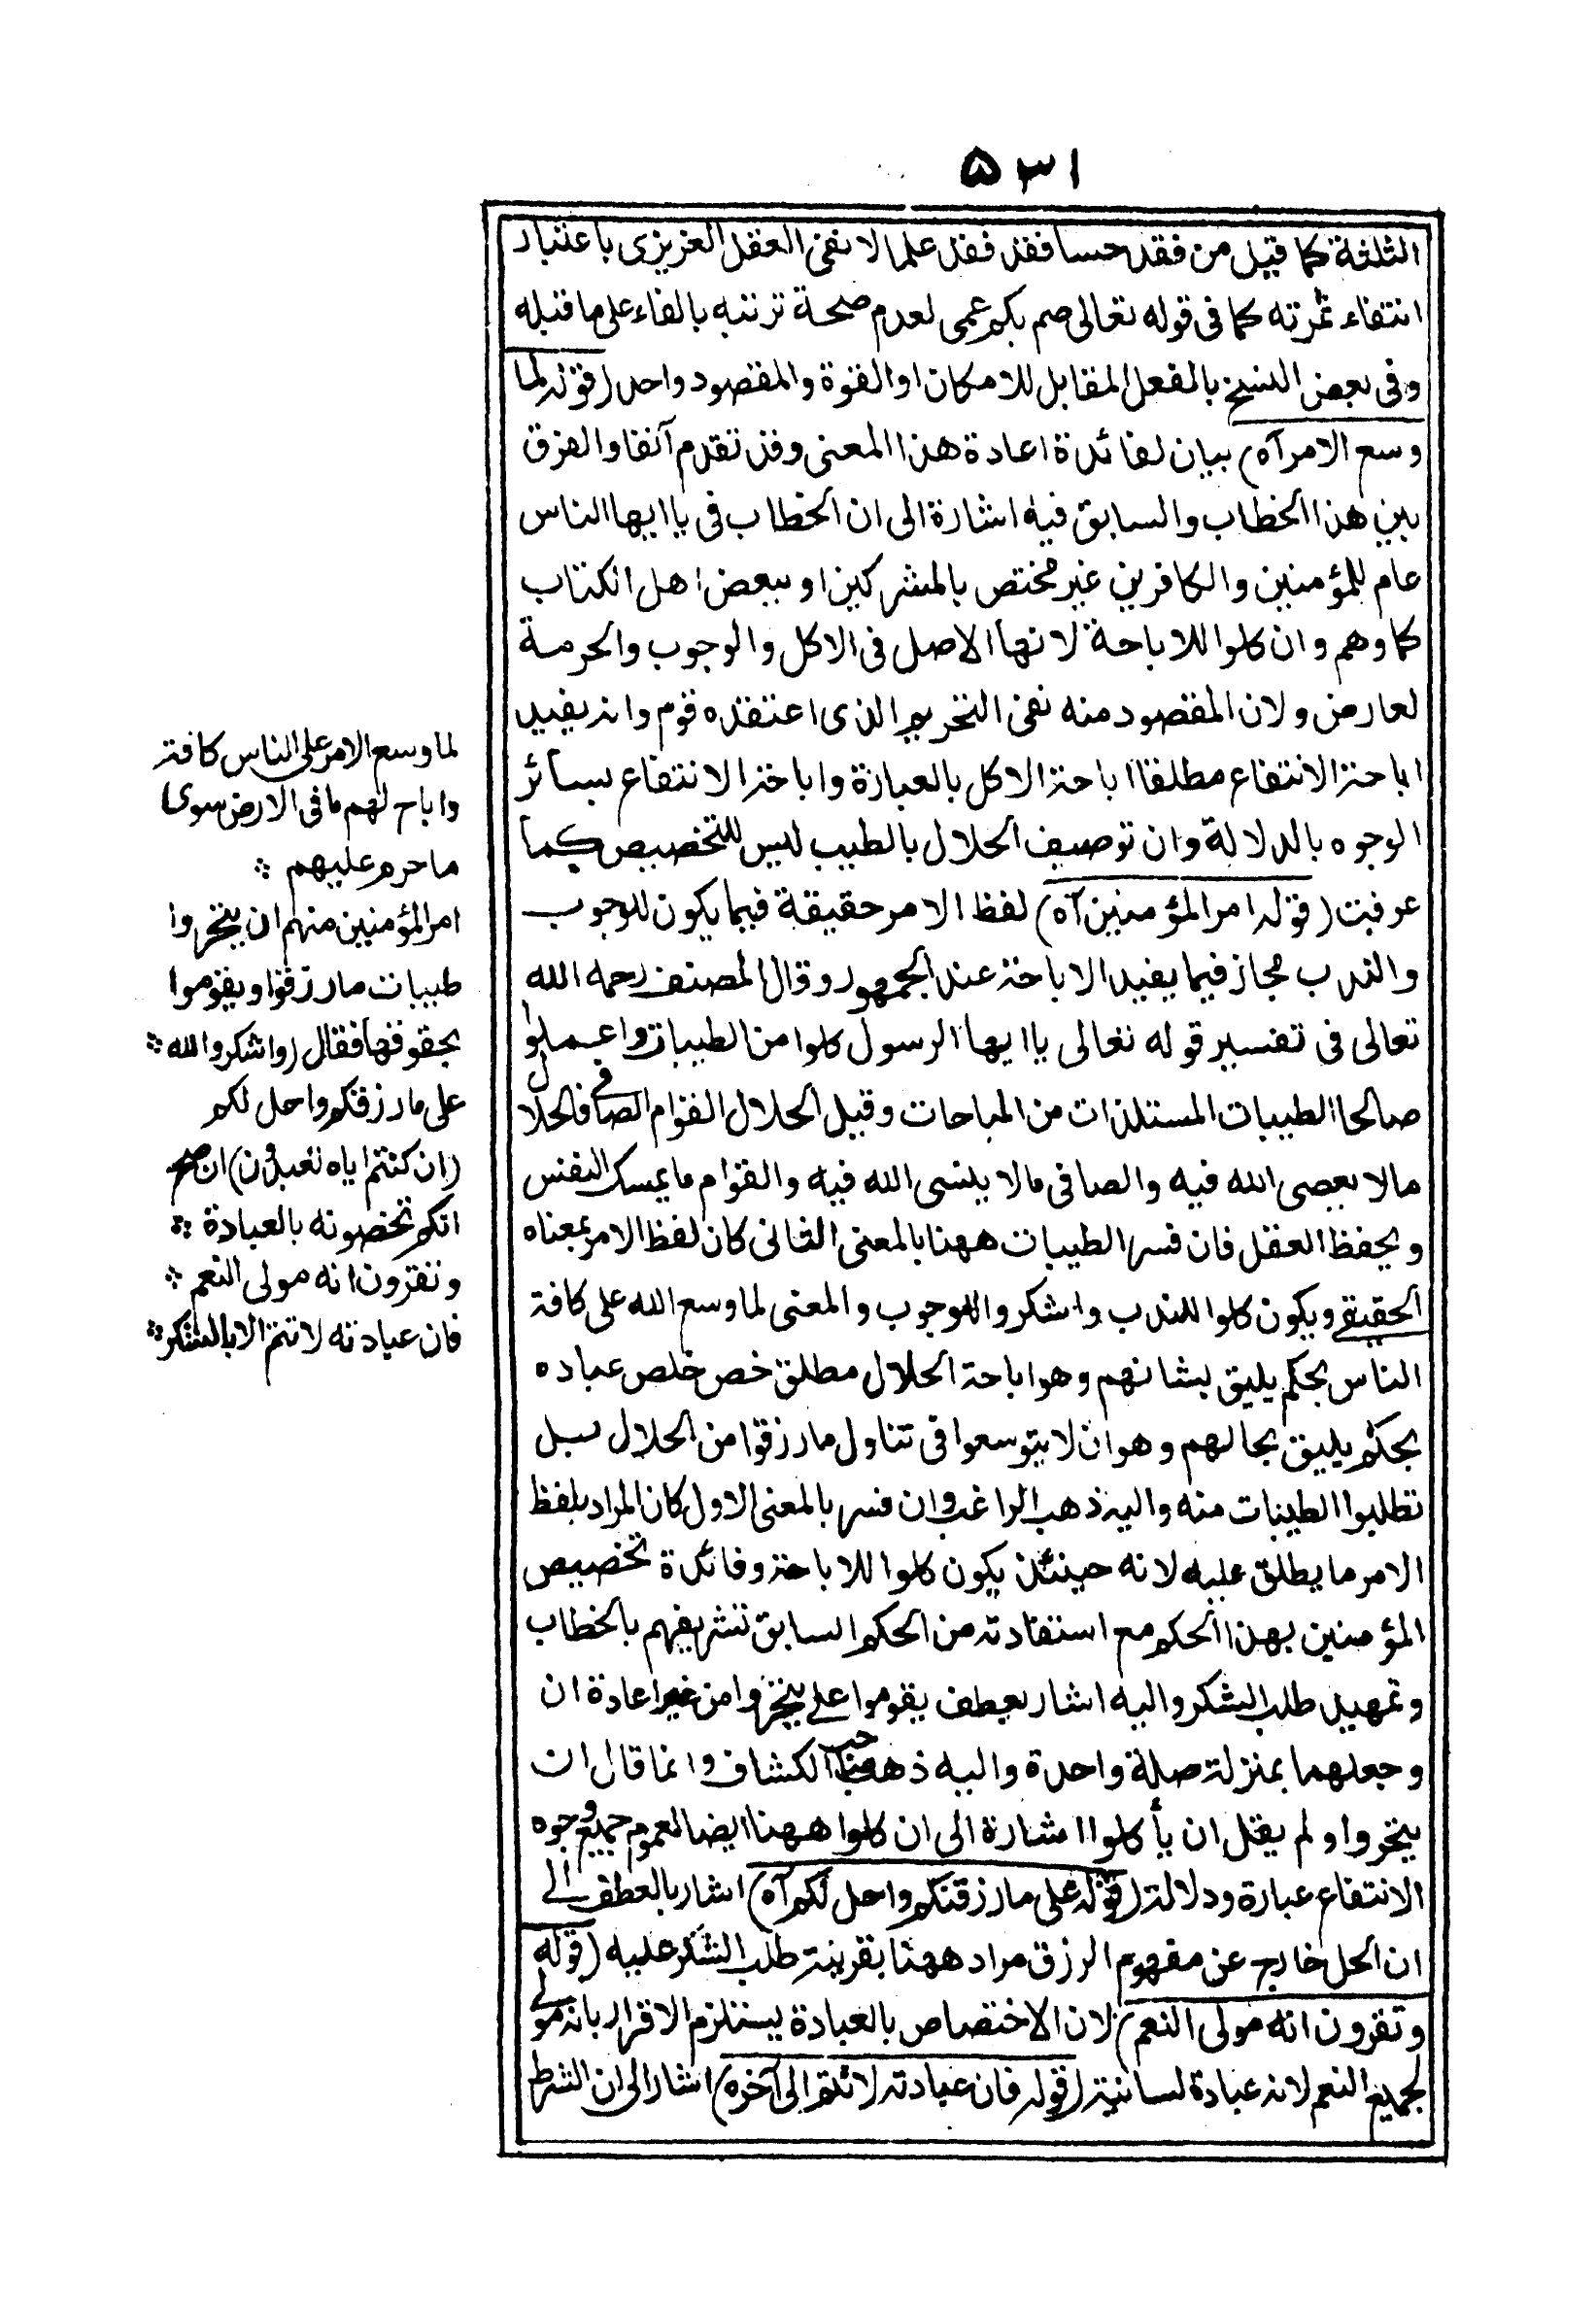 ٥٣١
الثلثة كما قيل من فقد حسا فقد فقد علما لا نفى العقل الغريزى باعتبار
انتفاء ثمرته كما فى قوله تعالى صم بكم عمى لعدم صحة ترتبه بالفاء على ما قبله
وفى بعض النسخ بالفعل المقابل للامكان او القوة والمقصود واحد (قوله لما
وسع الامر آه) بيان لفائدة اعادة هذا المعنى وقد تقدم آنفا والفرق
بين هذا الخطاب والسابق فيه اشارة الى ان الخطاب فى يا ايها الناس
عام للمؤمنين والكافرين غير مختص بالمشركين او ببعض اهل الكتاب
كما وهم وان كلوا للاباحة لانها الاصل فى الاكل والوجوب والحرمة
لعارض ولان المقصود منه نفى التحريم الذى اعتقده قوم وانه يفيد
اباحة الانتفاع مطلقا اباحة الاكل بالعبارة واباحة الانتفاع بسائر
الوجوه بالدلالة وان توصيف الحلال بالطيب ليس للتخصيص كما
عرفت (قوله امر المؤمنين آه) لفظ الامر حقيقة فيما يكون للوجوب
والندب مجاز فيما يفيد الاباحة عند الجمهور وقال المصنف رحمه الله
تعالى فى تفسير قوله تعالى يا ايها الرسول كلوا من الطيبات واعملوا
صالحا الطيبات المستلذات من المباحات وقيل الحلال القوام الصافى فالحلال
مالا يعصى الله فيه والصافى مالا ينسى الله فيه والقوام ما يمسك النفس
ويحفظ العقل فان فسر الطيبات ههنا بالمعنى الثانى كان لفظ الامر بمعناه
الحقيقى ويكون كلوا للندب واشكروا للوجوب والمعنى لما وسع الله على كافة
الناس بحكم يليق بشانهم وهو اباحة الحلال مطلق خص خلص عباده
بحكم يليق بحالهم وهو ان لا يتوسعوا فى تناول ما رزقوا من الحلال بل
تطلبوا الطيبات منه واليه ذهب الراغب وان فسر بالمعنى الاول كان المراد بلفظ
الامر ما يطلق عليه لانه حينئذ يكون كلوا للاباحة وفائدة تخصيص
المؤمنين بهذا الحكم مع استفادته من الحكم السابق تشريفهم بالخطاب
وتمهيد طلب الشكر واليه اشار بعطف يقوموا على يتحروا من غير اعادة ان
وجعلهما بمنزلة صلة واحدة واليه ذهب صاحب الكشاف وانما قال ان
يتحروا ولم يقل ان يأكلوا اشارة الى ان كلوا ههنا ايضا لعموم جميع وجوه
الانتفاع عبارة ودلالة (قوله على ما رزقنكم واحل لكم آه) اشار بالعطف الى
ان الحل خارج عن مفهوم الرزق مراد ههنا بقرينة طلب الشكر عليه (قوله
وتقرون انه مولى النعم) لان الاختصاص بالعبادة يستلزم الاقرار بانه مولى
لجميع النعم لانه عبادة لسانية (قوله فان عبادته لا تتم الى آخره) اشار الى ان الشرط
لما وسع الامر على الناس كافة
واباح لهم ما فى الارض سوى
ما حرم عليهم ؞
امر المؤمنين منهم ان يتحروا
طيبات ما رزقوا ويقوموا
بحقوقها فقال (واشكروا لله ؞
على ما رزقكم واحل لكم
(ان كنتم اياه تعبدون) ان صح
انكم تخصونه بالعبادة ؞
وتقرون انه مولى النعم ؞
فان عبادته لا تتم الا بالشكر ؞